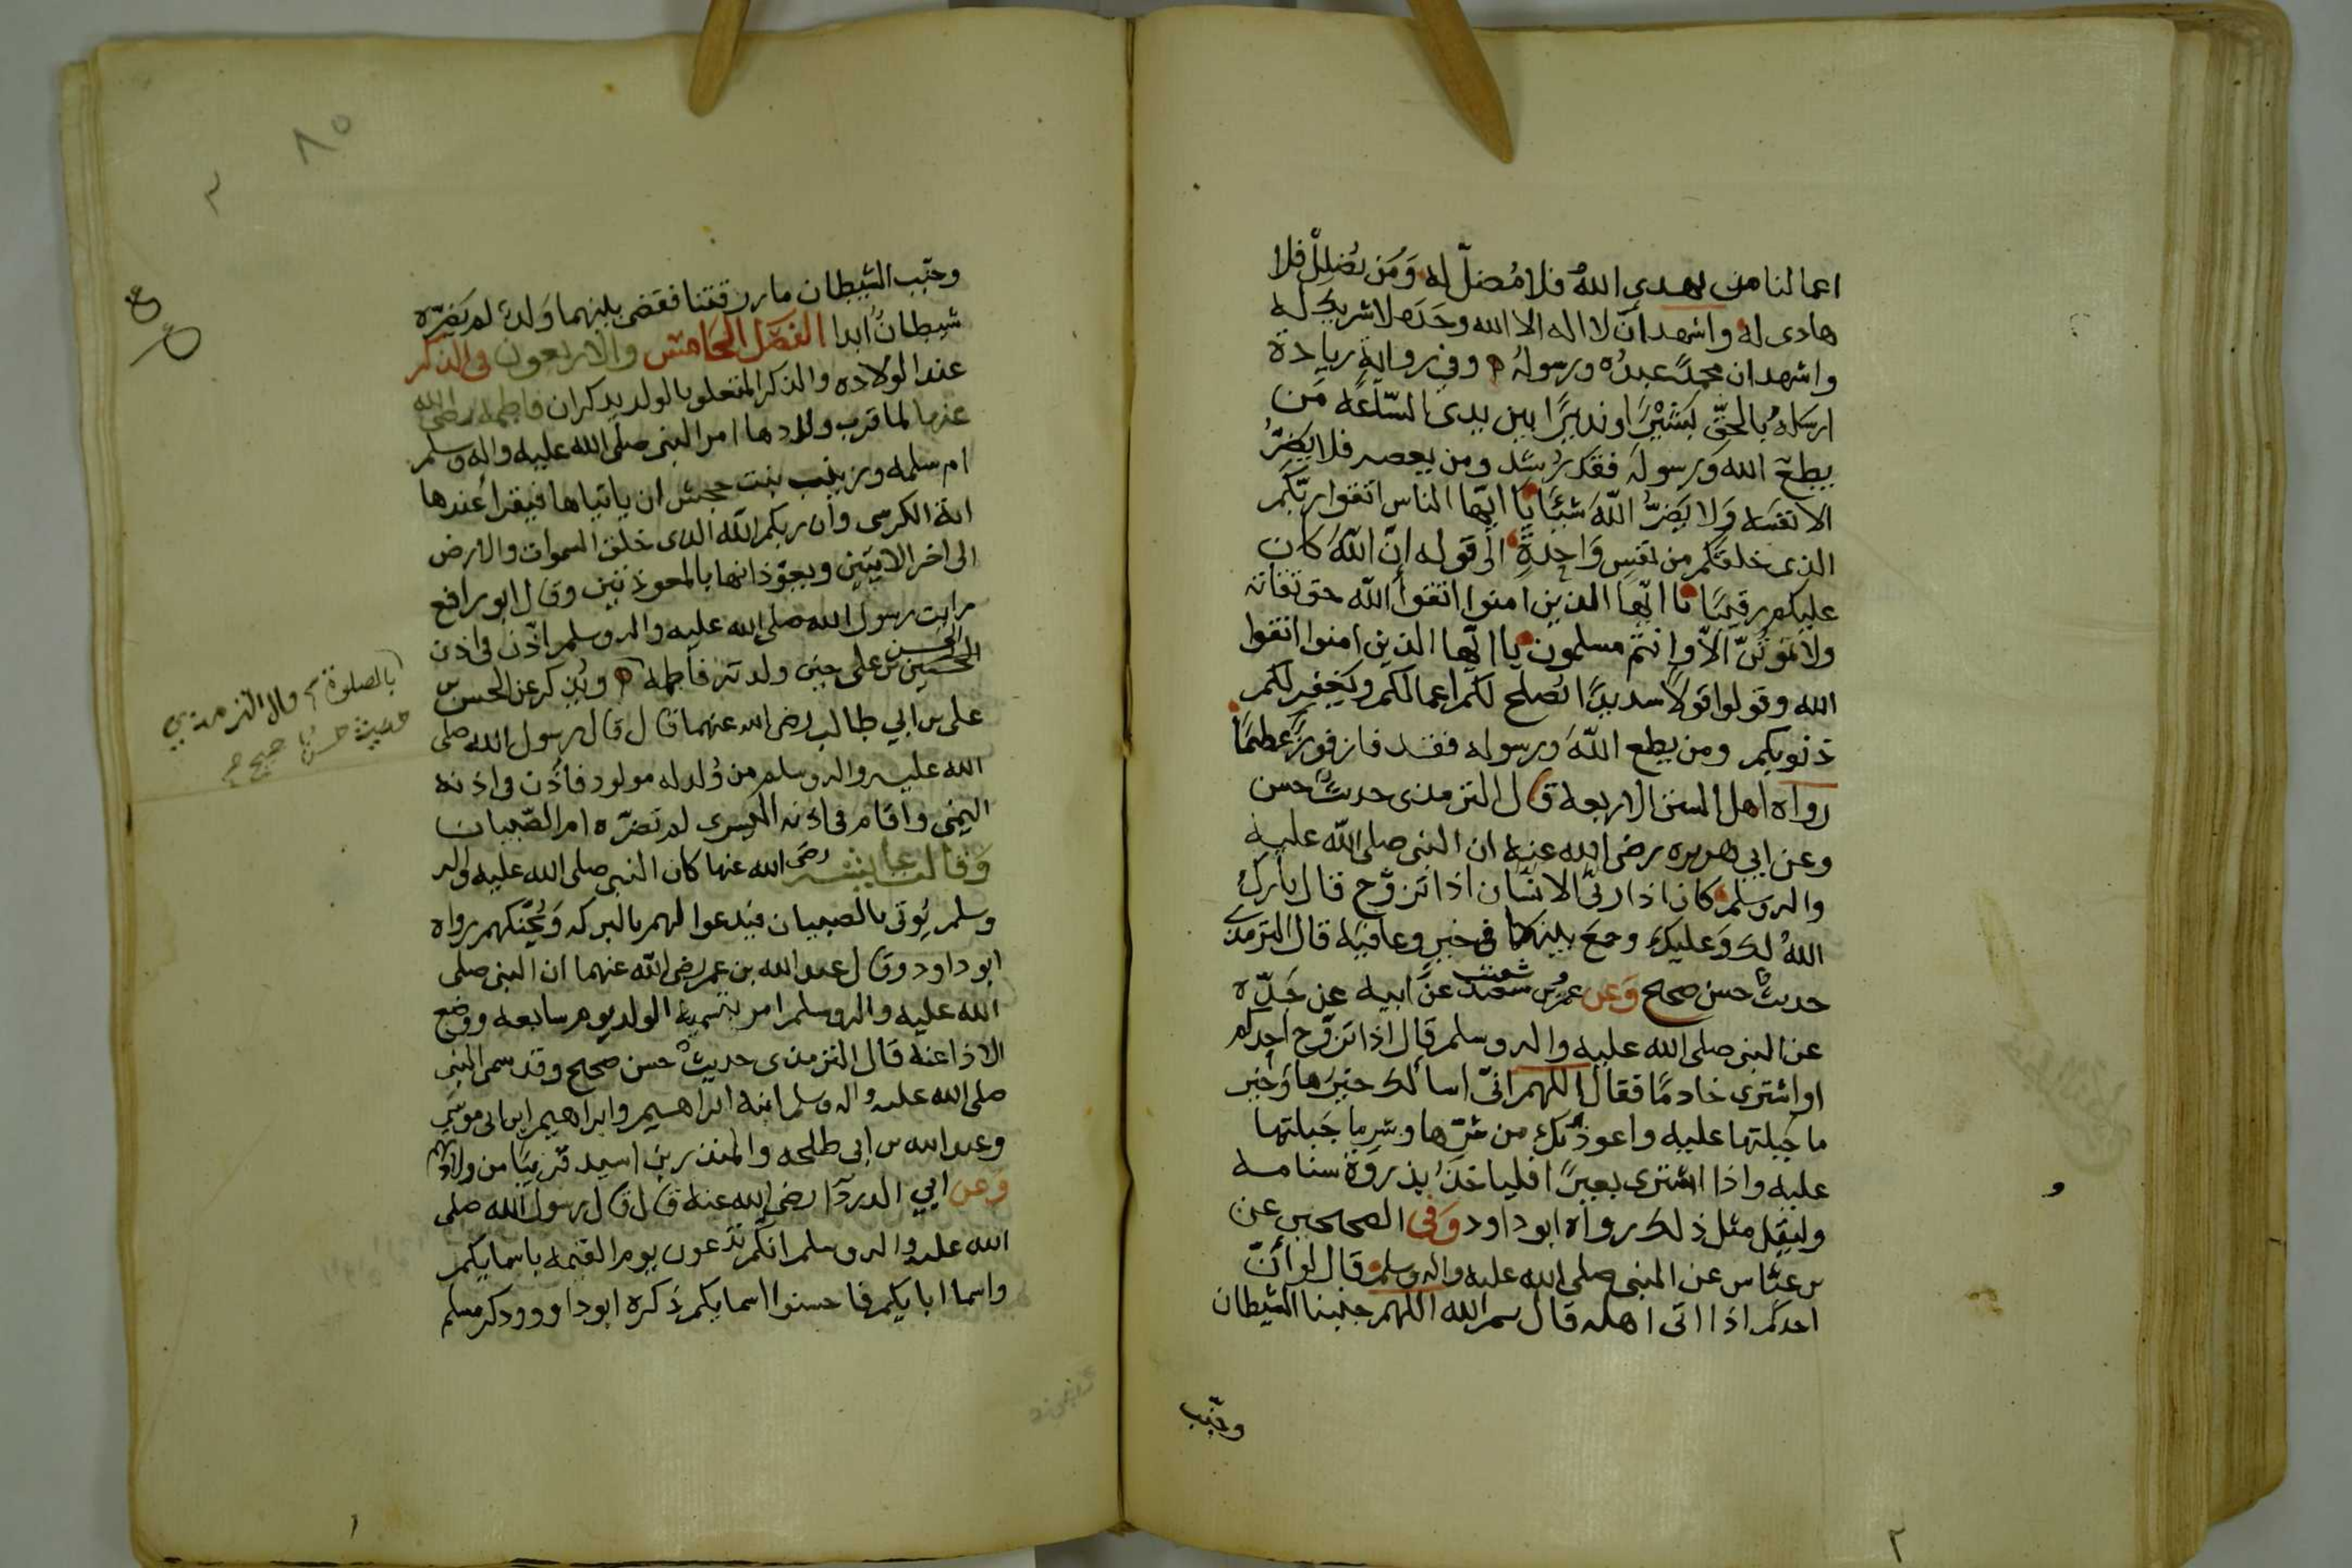 اعمالنا من يهدى اللهُ فلا مُضلّ له وَمَن يُضلِلْ فلا
هادى له واشهد انّ لا اله الا الله وحدَه لا شريك له
واشهد ان محمدًا عبدُه ورسولهُ وفى رواية زيادة
ارسَله بالحقّ بَشيْرًا ونذيرًا بين يدى السّاعه مَن
يطع الله ورسولَه فقد رشد ومن يعصه فلا يَضرُّ
الا نفسَه وَلا يَضرُّ اللّهَ شيئًا يا ايّها الناس اتقوا ربّكم
الذى خلقكم من نفسٍ وَاحِدةٍ الى قوله انّ اللّهَ كان
عليكم رقيبًا يا ايّها الذين امنوا اتقوا اللّه حق تقاته
ولا تموتُنّ الّا وانتم مسلمون يا ايّها الذين امنوا اتقوا
الله وقولوا قولًا سديدًا يُصلح لكم اعمالكم ويَغفر لكم
ذنوبكم ومن يطع اللّهَ ورسوله فقد فاز فوزًا عظيمًا
رواه اهل السنن الاربعه قال الترمذى حديثٌ حسن
وعن ابي هريره رضى الله عنه ان النبى صلى اللّه عليه
واله وسلم كان اذا رفّى الانسَان اذا تزوّج قال بارك
اللهُ لك وَعليك وجمعَ بينكما فى خيرٍ وعافيَه قال الترمذى
حديثٌ حسن صحيح وَعن عمرو بن شعيب عن ابيه عن جَدّه
عن النبى صلى الله عليه واله وسلم قال اذا تزوّج احدكم
او اشترى خادمًا فقال اللهم انّى اسالك خيرَها وَخير
ما جَبلتها عليه واعوذ بك من شرّها وشرِ ما جَبلتها
عليه واذا اشترى بعيرًا فلياخذ بذروَة سنامه
وليقل مثل ذلك رواه ابو داود وَفى الصحيحين عن
بن عبّاس عن النبى صلى الله عليه واله وسلم قال لو انّ
احدكم اذا اتى اهله قال بسم الله اللهم جنبنا الشيطان
وجنّب
٨٥
وجنّب الشيطان ما رزقتنا فقضى بينهما وَلدٌ لم يَضرّه
شيطانٌ ابدا الفصْل الخامسْ والاربعون فى الذكر
عند الولاده والذكر المتعلق بالولد يذكر ان فاطمه رضى الله
عنها لما قرب ولادها امر النبى صلى الله عليه واله وسلم
ام سلمه وزينب بنت جحش ان ياتياها فيقرأ عندها
اية الكرسى وان ربكم اللّه الذى خلق السموات والارض
الى اخر الايتين ويعوّذانها بالمعوذتين وقال ابو رافع
رايت رسول الله صلى الله عليه واله وسلم اذّن فى اذن
الحسين الحسن بن على حين ولدته فاطمه ويُذكر عن الحسن بن
بالصلوة وقال الترمذى
حديث حسنٌ صحيح
على بن ابي طالب رضى الله عنهما قال قال رسول الله صلى
الله عليه واله وسلم من وُلد له مولود فأذّن فى اذنه
اليمنى واقام فى اذنه اليسرى لم تضرّه ام الصّبيان
وَقالت عايشه رضى الله عنها كان النبى صلى الله عليه واله
وسلم يُوتى بالصبيان فيدعوا لهم بالبركه وَيُحنّكهم رواه
ابو داود وقال عبد الله بن عمر رضى اللّه عنهما ان النبى صلى
الله عليه واله وسلم امر بتسمية الولد يوم سابعه ووضع
الاذا عنه قال الترمذى حديثٌ حسن صحيح وقد سمى النبى
صلى الله عليه واله وسلم ابنه ابراهيم وابراهيم ابن ابى موسَى
وعبد الله بن ابى طلحه والمنذر بن اسيد قريبًا من ولادتهم
وعن ابي الدردآ رضى الله عنه قال قال رسول الله صلى
الله عليه واله وسلم انكم تدْعون يوم القيمه باسمايكم
واسما ابايكم فاحسنوا اسمايكم ذكره ابو داوود وذكر مسلم